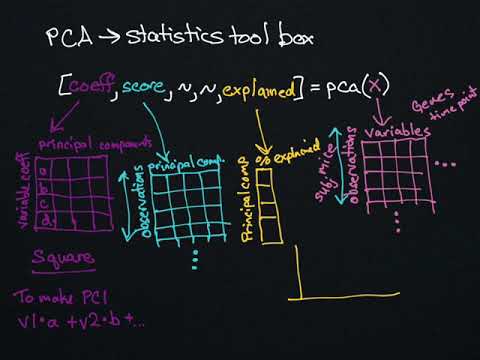 PCA → statistics tool box
[coeff, score, ~, ~, explained] = pca(x)
principal components
variable coeff
a
b
c
d
Square
To make PC1
v1·a + v2·b + ...
principal comp.
observations
...
% explained
Principal coms
Genes,
time point
variables
subj, mice
observations
...
...